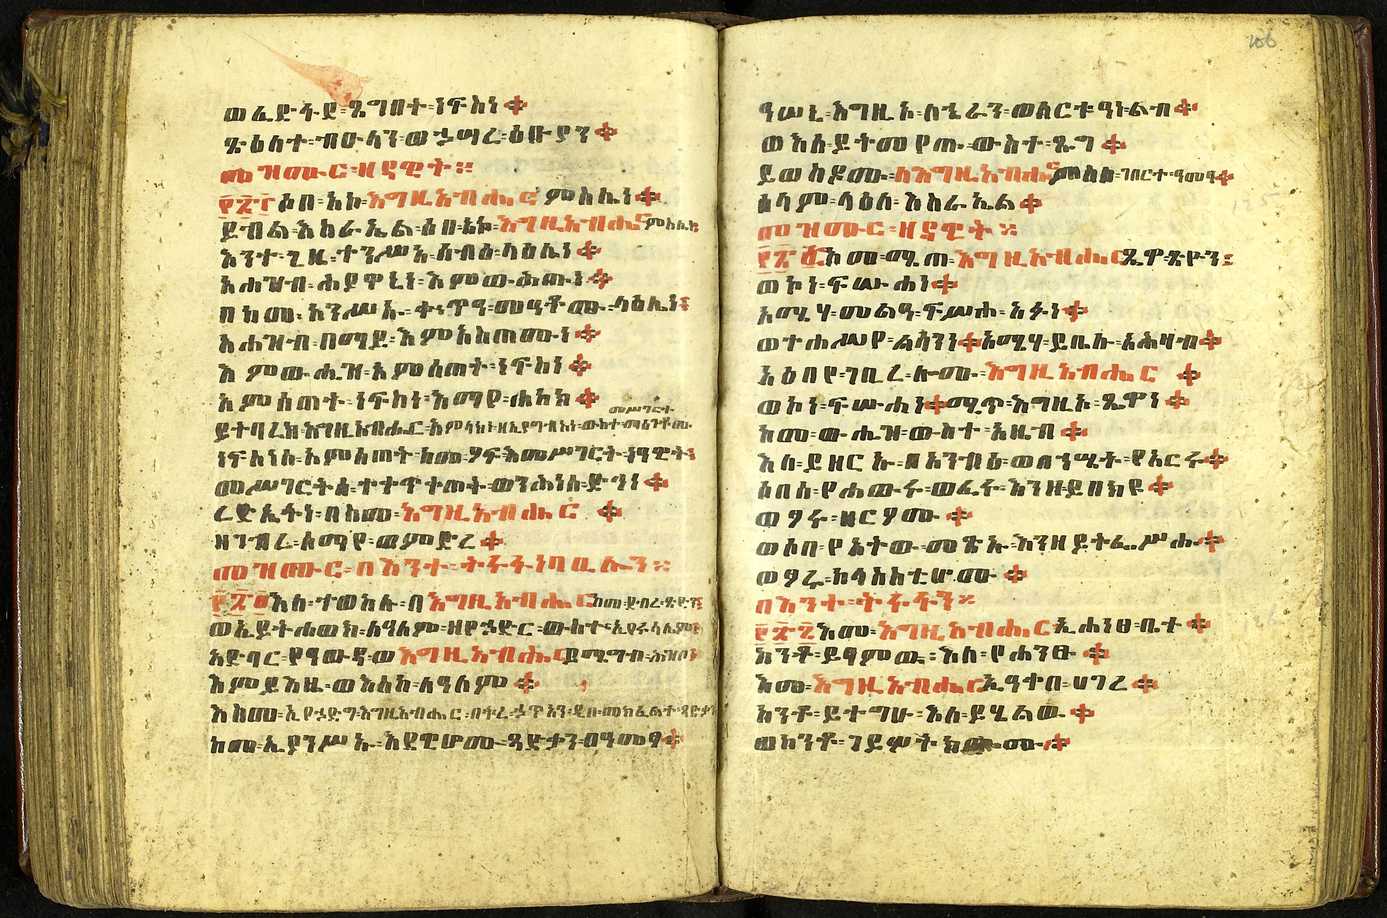 ወፈድፋደ፡ጸግበት፡ነፍስነ
ጽዕለተ፡ብዑላን፡ወኃሣረ፡ዕቡያን
መዝሙር፡ዘዳዊት።
፻፳፫ሶበ፡አኮ፡እግዚአብሔር፡ምስሌነ
ይብል፡እስራኤል፡ሶበ፡አኮ፡እግዚአብሔር፡ምስሌነ
እንተ፡ጊዜ፡ተንሥኡ፡ሰብእ፡ላዕሌነ
አሐዝብ፡ሕያዋኒነ፡እምውሕጡነ
በከመ፡አንሥኡ፡ቍጥዓ፡መዓቶሙ፡ላዕሌነ
አሕዝብ፡በማይ፡እምአስጠሙነ
እምውሒዝ፡አምሰጠት፡ነፍስነ
አምሰጠት፡ነፍስነ፡እማየ፡ሐከክ
ይትባረክ፡እግዚአብሔር፡አምላክነ፡ዘኢያግብአነ፡ውስተ፡መሥገርተ፡ማዕገቶሙ
ነፍስነሰ፡አምሰጠት፡ከመ፡ዖፍ፡እመሥገርት፡ነዓዊት
መሥገርትሰ፡ተቀጥቀጠት፡ወንሕነሰ፡ድኅነ
ረድኤትነ፡በስመ፡እግዚአብሔር
ዘገብረ፡ሰማየ፡ወምድረ
መዝሙር፡በእንተ፡ትፋፋነ፡ባዊሎን።
፻፳፬እለ፡ተወከሉ፡በእግዚአብሔር፡ከመ፡ደብረ፡ጽዮን
ወኢይትሐወክ፡ለዓለም፡ዘየኃድር፡ውስተ፡ኢየሩሳሌም
አድባር፡የዓውዳ፡ወእግዚአብሔር፡ይሜግብ፡ሕዝቦ
እምይእዜ፡ወእስከ፡ለዓለም
እስመ፡ኢየኃድግ፡እግዚአብሔር፡በትረ፡ኃጥአን፡ዲበ፡መክፈልተ፡ጻድቃን
ከመ፡ኢያንሥኡ፡እደዊሆሙ፡ጻድቃን፡በዓመፃ
106
ዓሠኒ፡እግዚኦ፡ለኄራን፡ወለርቱዓነ፡ልብ
ወእለ፡ይትመየጡ፡ውስተ፡ጌጋ
ይወስዶሙ፡ለእግዚአብሔር፡ምስለ፡ገበርተ፡ዓመፃ
ሰላም፡ላዕለ፡እስራኤል
መዝሙር፡ዘዳዊት።
፻፳፭አመ፡ሜጠ፡እግዚአብሔር፡ጼዋ፡ጽዮን
ወኮነ፡ፍሡሐነ
አሜሃ፡መልዓ፡ፍሥሐ፡አፉነ
ወተሐሥየ፡ልሳንነ፡አሜሃ፡ይቤሉ፡አሕዛብ
አዕበየ፡ገቢረ፡ሎሙ፡እግዚአብሔር
ወኮነ፡ፍሡሐነ፡ሚጥ፡እግዚኦ፡ጼዋነ
ከመ፡ውሒዝ፡ውስተ፡አዜብ
እለ፡ይዘርኡ፡በአንብዕ፡ወበኃሤት፡የአርሩ
ሶበሰ፡የሐውሩ፡ወፈሩ፡እንዘ፡ይበክዩ
ወፆሩ፡ዘርዖሙ
ወሶበ፡የአትው፡መጽኡ፡እንዘ፡ይትፌሥሑ
ወፆሩ፡ከላስስቲሆሙ
በእንተ፡ትፋፋን።
፻፳፮እመ፡እግዚአብሔር፡ኢሐነፀ፡ቤተ
ከንቶ፡ይፃምዉ፡እለ፡የሐንፁ
እመ፡እግዚአብሔር፡ኢዓቀበ፡ሀገረ
ከንቶ፡ይተግሁ፡እለ፡ይሄልዉ
ወከንቶ፡ገይሦት፡ክሙ